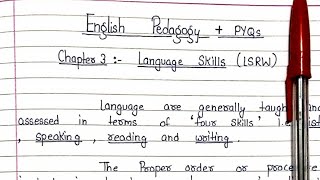 English Pedagogy + PYQs
Chapter 3 :- Language Skills (LSRW)
Language are generally taught and
assessed in terms of 'four skills' i.e. list
, speaking , reading and writing .
The Proper order or procedure